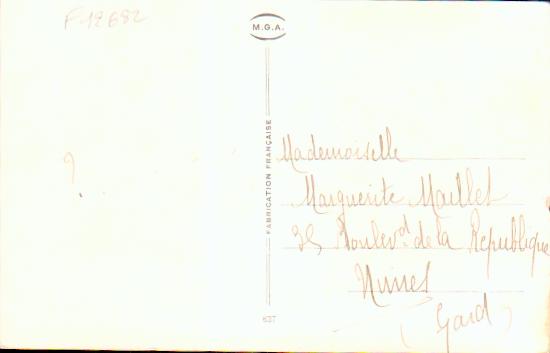 F 12682
M.G.A.
FABRICATION FRANÇAISE
Mademoiselle
Marguerite Maillet
35 Boulevd de la Republique
Nimes
(Gard)
637